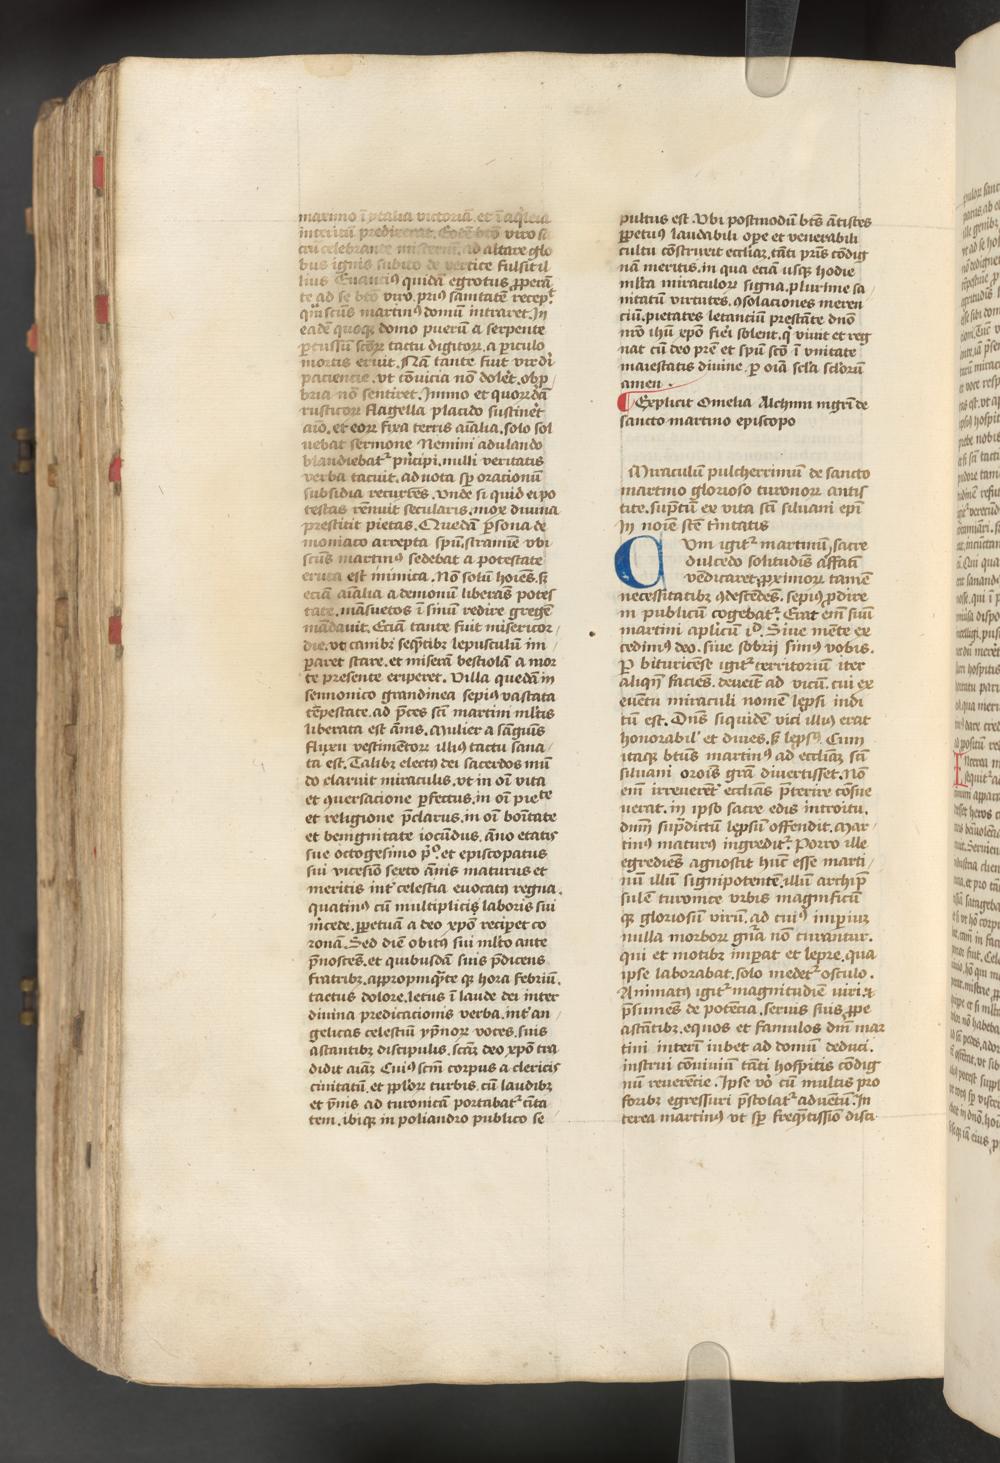 maximo ī ytalia victoriā. et ī aq̄leia
interitū predixerat. Eodē btō viro sa
cra celebrante misteriū. ad altare glo
bus ignis subito de vertice fulsit il
lius Euanciꝰ quidā egrotus ꝓperā
te ad se btō viro. priꝰ sanitatē recepᵗ
qm̄ scūs martinꝰ domū intraret. In
eadē quoqꝫ domo puerū a serpente
ꝑcussū scōꝝ tactu digitoꝝ. a ꝑiculo
mortis eruit. Nā tante fuit vir dī
paciencie. vt cōuicia nō dolēt. obꝑ
bria nō sentiret. Immo et quorūdā
rusticoꝝ flagella placido sustinēt
aīo. et eoꝝ fixa terris aīalia. solo sol
uebat sermone Nemini adulando
blandiebatᵣ pn̄cipi. nulli veritatis
verba tacuit. ad nota sꝑ orationū
subsidia recurrēs. Vnde si quid eī po
testas rēnuit secularis. mox diuina
prestitit pietas. Quedā ꝑsona de
moniaco arrepta spū. stramīe vbi
scūs martinꝰ sedebat a potestate
eruta est inimica. Nō solū hoīes. sꝫ
eciā aīalia a demoniū liberās potes
tate. māsuetos ī sinū redire gregē
mādauit. Eciā tante fuit misericor
die. vt canibꝫ seqn̄tibꝫ lepusculū im
ꝑaret stare. et miserā bestiolā a mor
te presente eriperet. Villa quedā in
sennonico grandinea sepiꝰ vastata
tēpestate. ad p̄ces scī martini ml̄tis
liberata est ānis. Mulier a sāguīs
fluxu vestimētoꝝ illiꝰ tactu sana
ta est. Talibꝫ electꝰ dei sacerdos mū
do claruit miraculis. vt in oī vita
et ꝯuersacione ꝑfectus. in oī pieᵗᵉ
et religione p̄clarus. in oī boītate
et benignitate iocūdus. āno etatis
sue octogesimo pᵒ. et episcopatus
sui vicesīo sexto ānis maturus et
meritis int̄ celestia euocatꝰ regna.
quatinꝰ cū multiplicis laboris sui
m̄cede. ꝑpetuā a deo xpō reciꝑet co
ronā. Sed diē obitꝰ sui ml̄to ante
p̄noscēs. et quibusdā suis p̄dicens
fratribꝫ. appropīnq̄te qꝫ hora febriū.
tactus dolore. letus ī laude dei inter
diuina predicacionis verba. int̄ an
gelicas celestiū ypnoꝝ voces. suis
astantibꝫ discipulis. scāꝫ deo xpō tra
didit aiāꝫ Cuiꝰ scm̄ corpus a clericis
ciuitatū. et ppl̄oꝝ turbis. cū laudibꝫ
et ynīs ad turonicā portabatᵣ cīta
tem. ibiqꝫ in poliandro publico se
pultus est Vbi postmodū bt̄s ātistes
ꝑpetuꝰ laudabili oꝑe et venerabili
cultu cōstruxit eccliaꝫ. tāti pr̄is cōdig
nā meritis. in qua eciā usqꝫ hodie
ml̄ta miraculoꝝ signa. plurime sa
nitatū virtutes. ꝯsolaciones meren
ciū. pietates letanciū prestāte dn̄o
nr̄o ihū xpō fieī solent. qͥ viuit et reg
nat cū deo pr̄e et spū scō ī vnitate
maiestatis diuine. ꝑ oīa scl̄a scl̄orū
amen.
Explicit Omelia Alchuni nigri de
sancto martino episcopo
Miraculū pulcherrimū de sancto
martino glorioso turonoꝝ antis
tite. suptū ex vita scī siluani epī
In noīe scē tīnitatis
Cum igitᵣ martinū. sacre
dulcedo solitudīs affatī
vēdicaret. ꝓximoꝝ tamē
necessitatibꝫ ꝯdescēdēs. sepiꝰ ꝓdire
in publicū cogebatᵣ. Erat eīm suū
martini aplicū iᵈ. Siue mēte ex
cedimꝰ deo. siue sobrij simꝰ vobis.
Per bituricēse igitᵣ territoriū iter
aliqn̄ faciēs. deueīt ad vicū. cui ex
euētu miraculi nomē lepsi indi
tū est. Dn̄s siquidē vici illiꝰ erat
honorabil' et diues. sꝫ lepsꝰ. Cum
itaqꝫ bt̄us martinꝰ ad eccliaꝫ scī
siluani orōis grā diuertisset. Nō
eīm irreuerēt ecclias p̄terire cōsue
uerat. in ipso sacre edis introitu.
dum sup̄dictū lepsū offendit. Mar
tinꝰ maturꝰ ingreditᵣ. Porro ille
egrediēs agnoscit hūc esse marti
nū illū signipotentē. illū archip̄
sulē turonice vrbis magnificū
qꝫ gloriosū virū. ad cuiꝰ imperiuꝫ
nulla morboꝝ gn̄a nō curantur.
qui et motibꝫ imꝑat et lepre. qua
ipse laborabat. solo medetᵣ osculo.
Animatꝰ igitᵣ magnitudīe viri. et
p̄sumēs de potēcia. seruis suis ꝓpe
astātibꝫ. equos et famulos dm̄ mar
tini interī iubet ad domū deduci.
instrui cōuiuiū tāti hospitis cōdig
nū reuerētie. Ipse vō cū multis pro
foribꝫ egressuri p̄stolatᵣ aduētū. In
terea martinꝰ vt sꝑ freqn̄tissīo disci